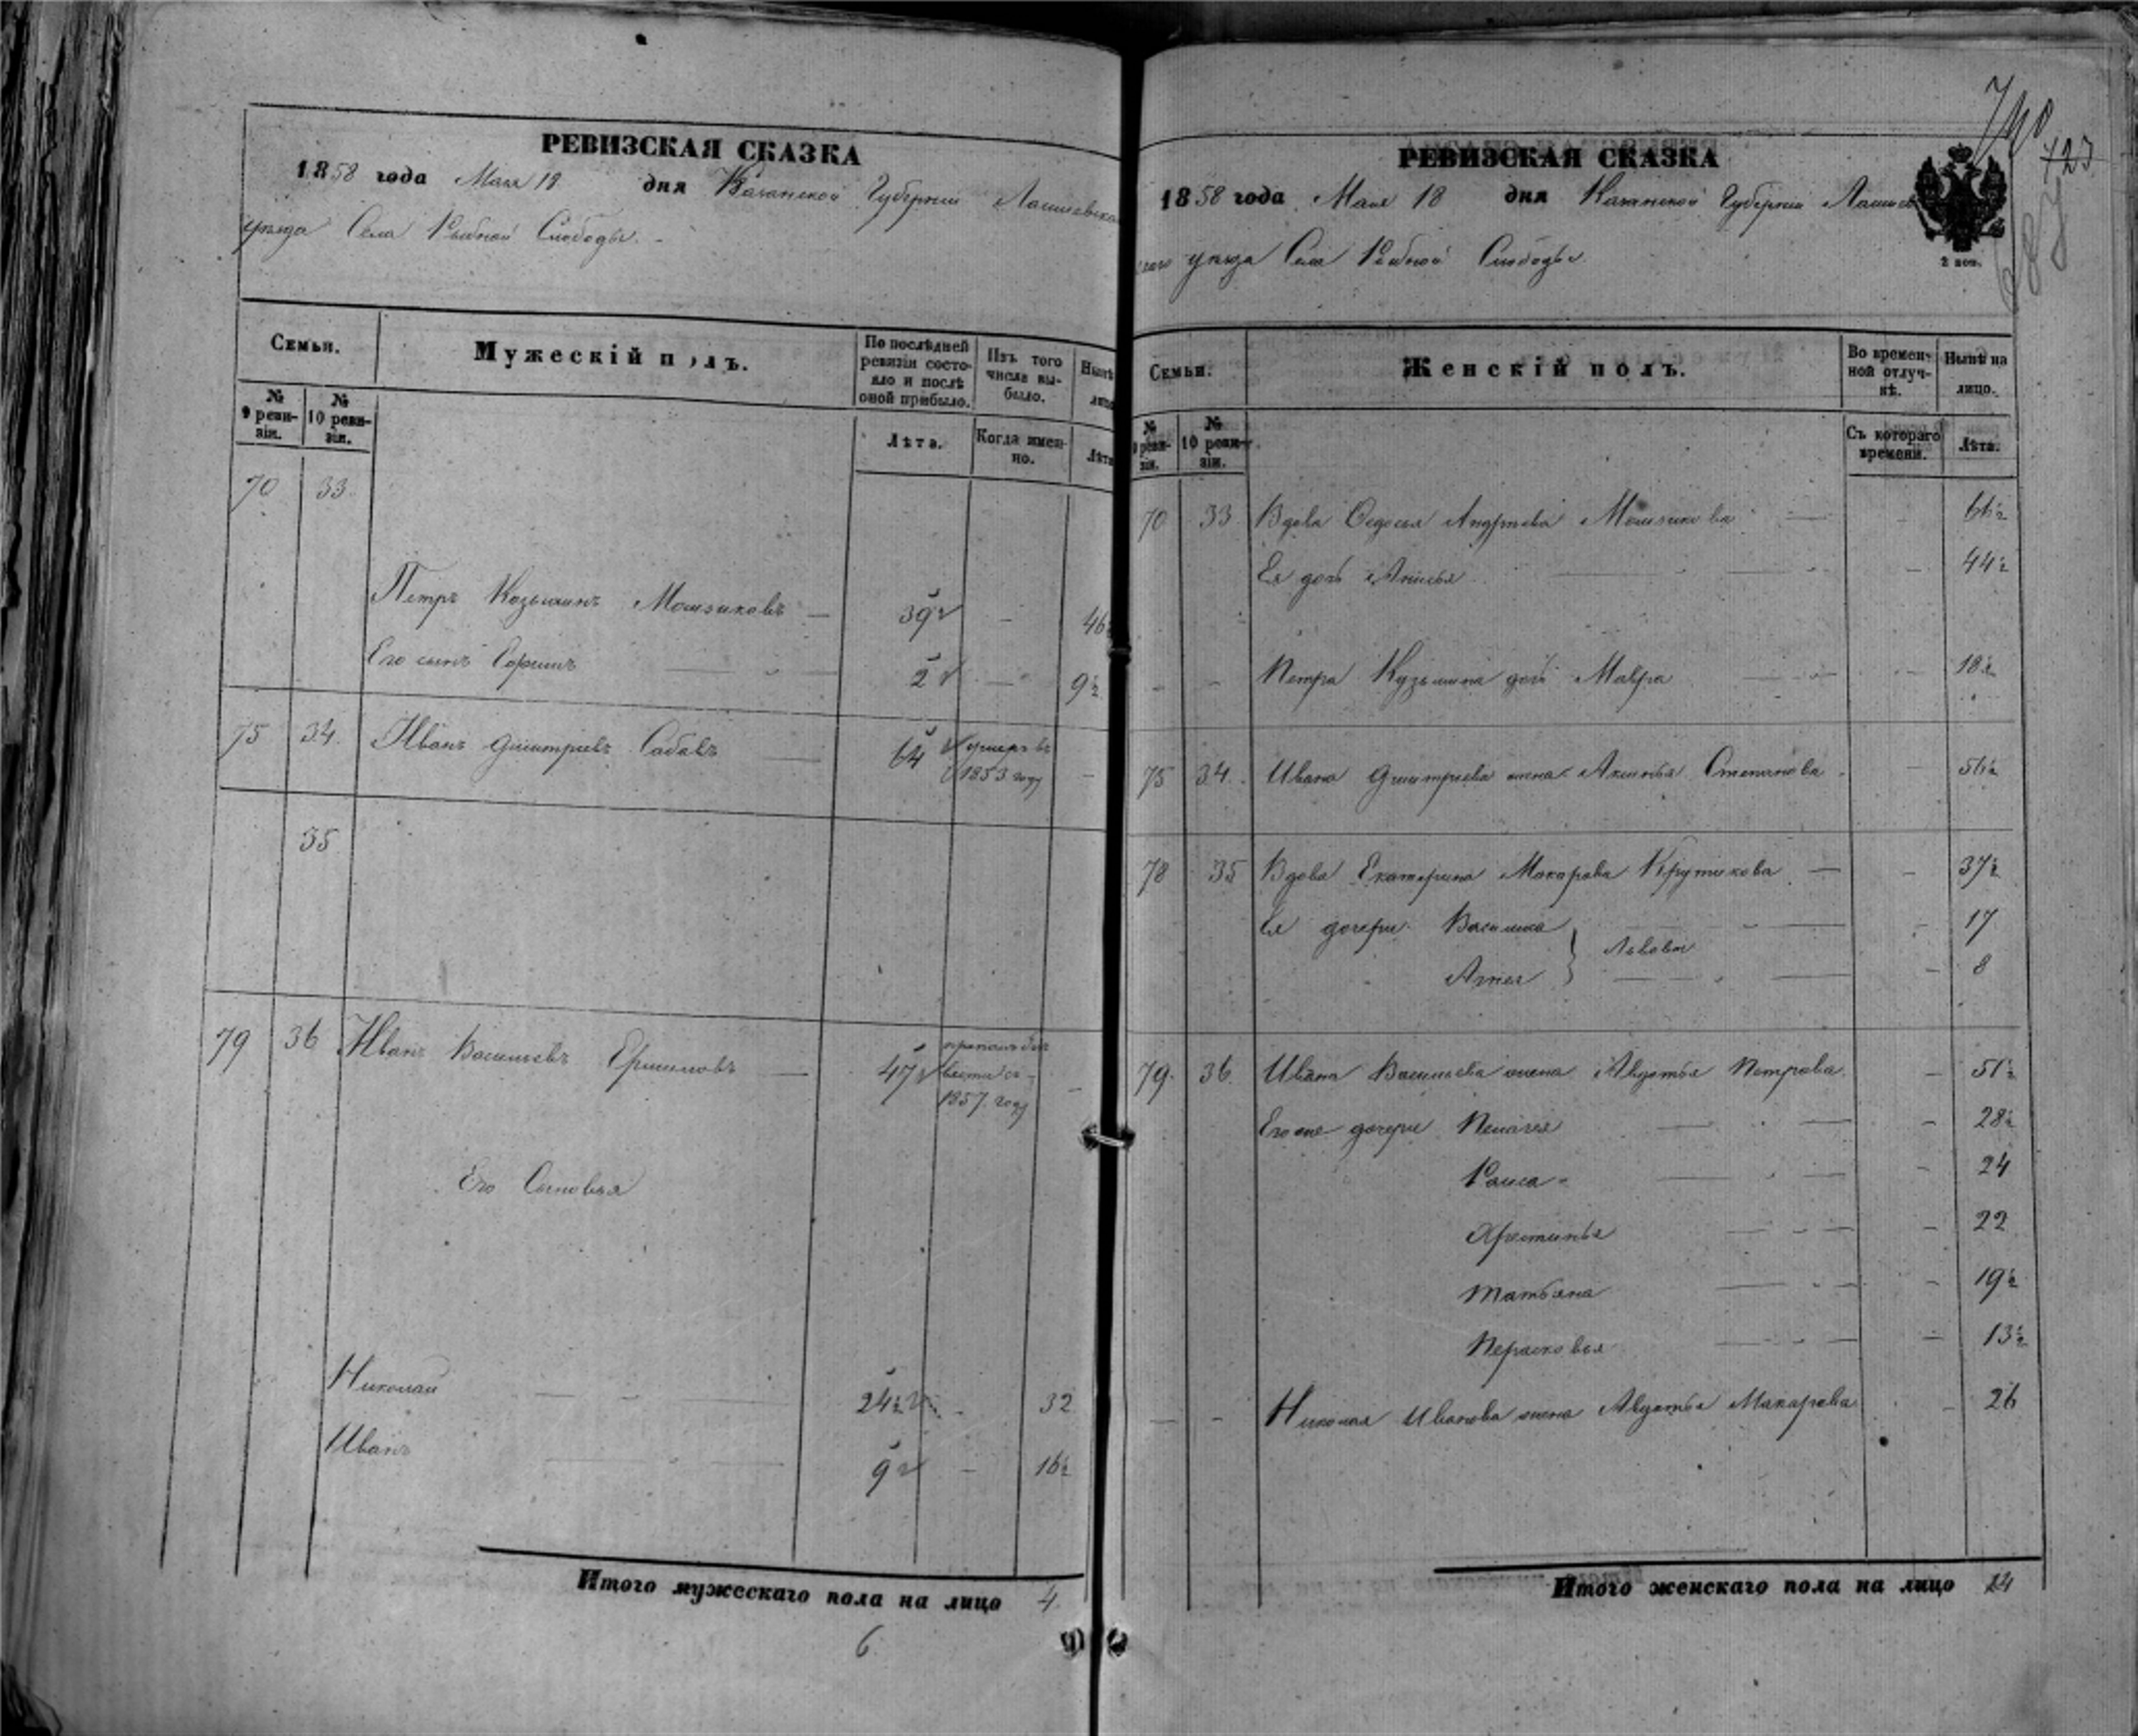 РЕВИЗСКАЯ СКАЗКА
1858 года Мая 18 дня Казанской Губернии Лаишевска
уѣзда Села Рыбной Слободы.
Семьи.
Мужескій полъ.
По послѣдней ревизіи состояло и послѣ оной прибыло.
Изъ того числа выбыло.
Нынѣ лицо
№ 9 ревизіи.
№ 10 ревизіи.
Лѣта.
Когда именно.
Лѣта
70 33.
Петръ Козьминъ 39 — 46
Его сынъ 2 — 9½
75 34. Иванъ Дмитриевъ 64 умеръ въ 1853 году —
35
79 36 Иванъ Васильевъ 47 1857 году —
Его Сыновья
Николай 24½ - 32
Иванъ 9 — 16½
Итого мужескаго пола на лицо 4.
6
РЕВИЗСКАЯ СКАЗКА
1858 года Мая 18 дня Казанской Губернии Лаишев
скаго уѣзда Села Рыбной Слободы.
2 коп.
423
Семьи.
Женскій полъ.
Во временной отлучкѣ.
Нынѣ на лицо.
№ 9 ревизіи.
№ 10 ревизіи.
Съ котораго времени.
Лѣта.
70 33 Вдова Федосья Андреева 66½
Ея дочь Анисья — 44½
- - Петра Кузьмина дочь Мавра — 18½
75 34. Ивана Дмитриева жена Аксинья Степанова — 56½
78 35 Вдова Екатерина Макарова Крутикова — 37½
Ея дочери Василиса 17
Львовы
8
79. 36. Ивана Васильева жена Авдотья Петрова — 51½
Его же дочери Пелагея — 28½
Раиса — 24
Хрестинья — 22
Татьяна — 19½
Парасковья — 13½
— - Николая Иванова жена Авдотья Макарова - 26
Итого женскаго пола на лицо